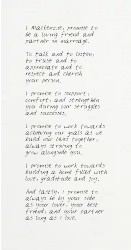 I Mackenzie, promise to
be a loving friend and
partner in marriage.
To talk and to listen,
to trust and to
appreciate and to
respect and cherish
your person.
I promise to support,
comfort, and strengthen
you during our struggles
and successes.
I promise to work towards
achieving our goals as we
build our lives together,
always striving to
grow alongside you.
I promise to work towards
building a home filled with
love, gratitude and joy.
And lastly, I promise to
always be by your side
as your lover, your best
friend, and your partner
as long as I live.